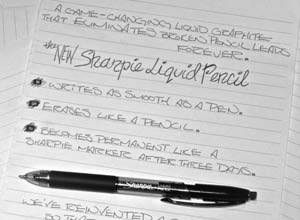 A GAME-CHANGING LIQUID GRAPHITE
THAT ELIMINATES BROKEN PENCIL LEADS
FOREVER.
the NEW Sharpie Liquid Pencil
WRITES AS SMOOTH AS A PEN.
ERASES LIKE A PENCIL.
BECOMES PERMANENT LIKE A
SHARPIE MARKER AFTER THREE DAYS.
Sharpie
WE'VE REINVENTED
SO THAT